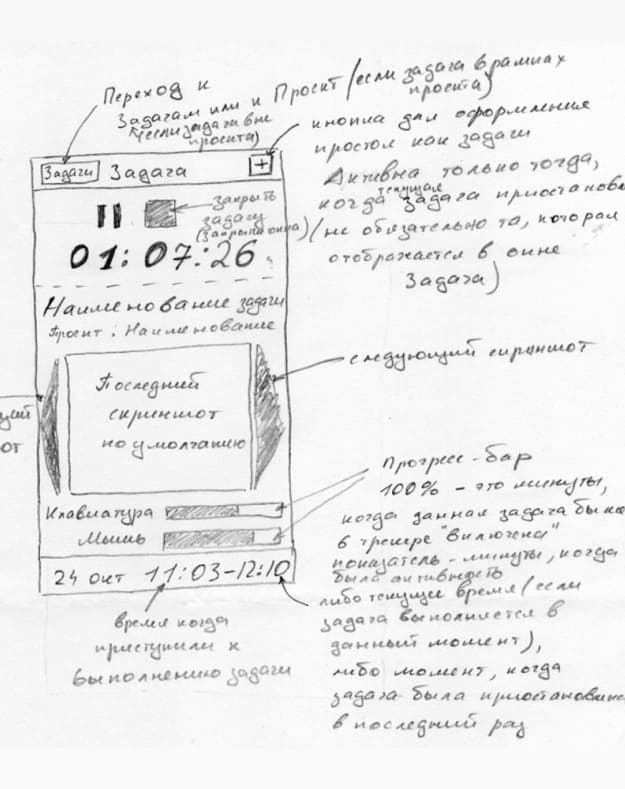 Переход к
Задачам или к Проект (если задача в рамках
проекта)
(если задача вне
проекта)
кнопка для оформления
простоя как задачи
Активна только тогда,
когда текущая задача приостановл
(не обязательно та, которая
отображается в окне
Задача)
Задачи Задача +
закрыть
задачу
(закрытие окна)
01:07:26
Наименование задачи
Проект: Наименование
Последний
скриншот
по умолчанию
следующий скриншот
щий
от
Прогресс-бар
100% - это минуты,
когда данная задача была
в трекере "включена"
показатель - минуты, когда
была активность
Клавиатура
Мышь
24 окт 11:03-12:10
либо текущее время (если
задача выполняется в
данный момент),
либо момент, когда
задача была приостановлена
в последний раз
время когда
приступили к
выполнению задачи